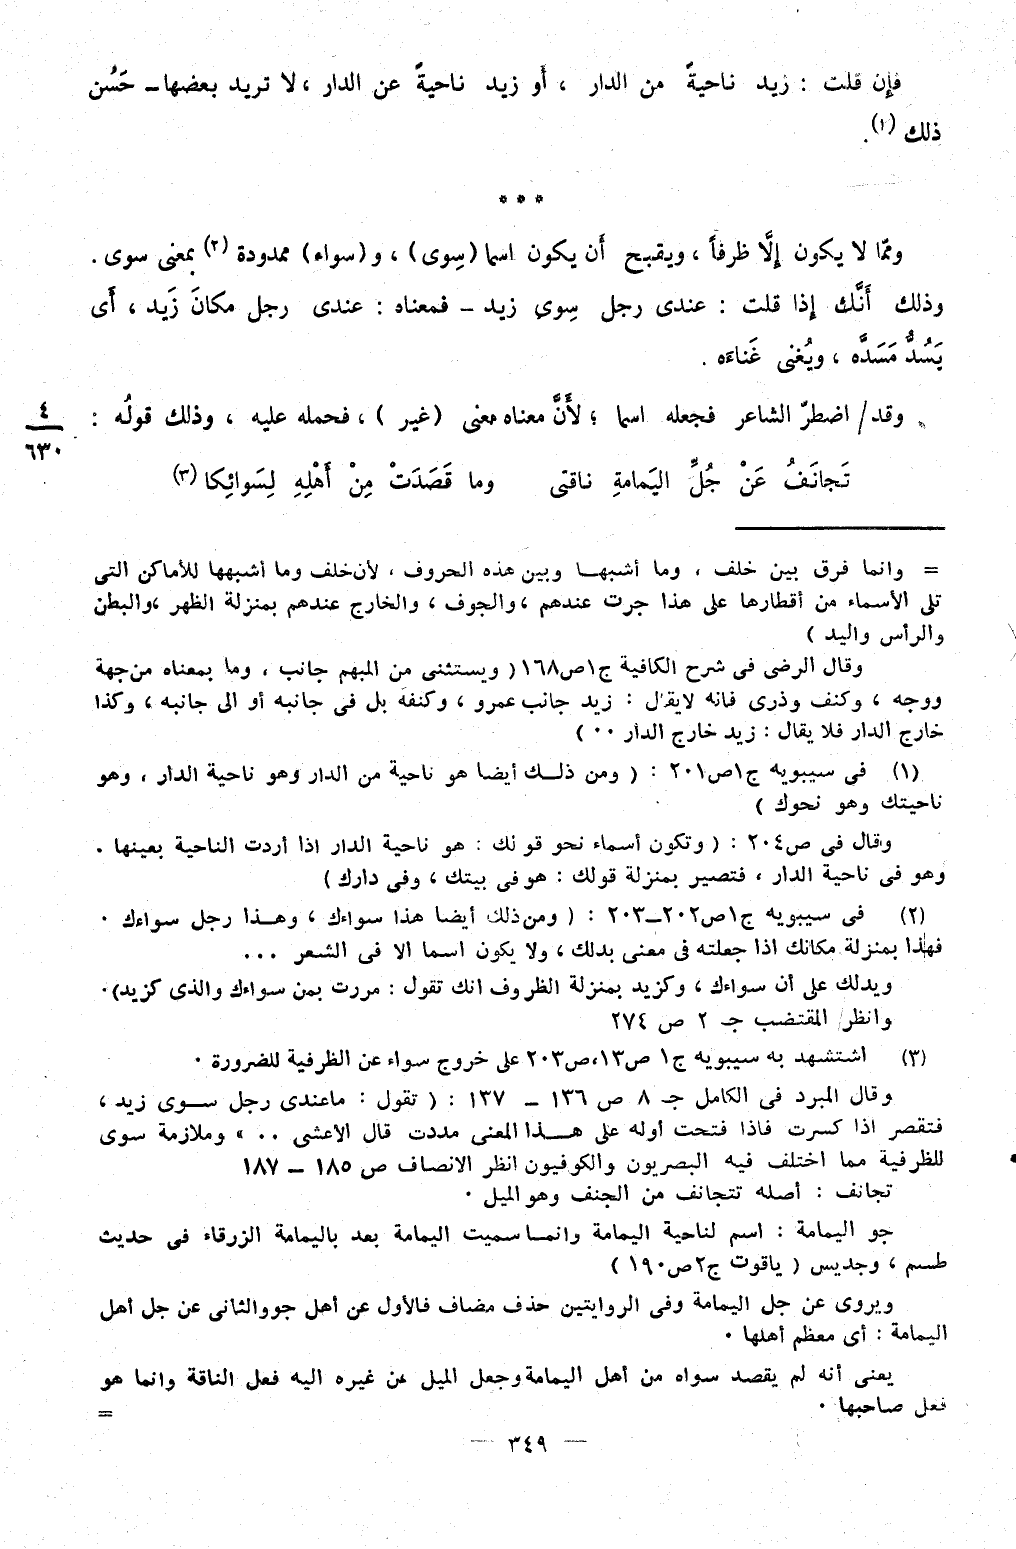 فإن قلت : زيد ناحيةً من الدار ، أَو زيد ناحيةً عن الدار ، لا تريد بعضها – حَسُن
ذلك (١).
* * *
وممّا لا يكون إِلَّا ظرفاً ، ويقبح أَن يكون اسما (سِوى) ، و(سواء) ممدودة (٢) بمعنى سوى .
وذلك أَنَّك إِذا قلت : عندى رجل سِوى زيد – فمعناه : عندى رجل مكانَ زَيد ، أَى
يَسُدُّ مَسَدَّه ، ويُغنى غَناءَه .
وقد/ اضطرّ الشاعر فجعله اسما ؛ لأَنَّ معناه معنى (غير) ، فحمله عليه ، وذلك قولُه :
٤
٦٣٠
تَجانَفُ عَنْ جُلِّ اليَمامةِ ناقتى وما قَصَدَتْ مِنْ أَهْلِهِ لِسَوائِكا (٣)
= وانما فرق بين خلف ، وما أشبهها وبين هذه الحروف ، لأن خلف وما أشبهها للأماكن التى
تلى الأسماء من أقطارها على هذا جرت عندهم ، والجوف ، والخارج عندهم بمنزلة الظهر ، والبطن
والرأس واليد )
وقال الرضى فى شرح الكافية ج١ص١٦٨( ويستثنى من المبهم جانب ، وما بمعناه من جهة
ووجه ، وكنف وذرى فانه لايقال : زيد جانب عمرو ، وكنفه بل فى جانبه أو الى جانبه ، وكذا
خارج الدار فلا يقال : زيد خارج الدار ٠٠ )
(١) فى سيبويه ج١ص٢٠١ : ( ومن ذلك أيضا هو ناحية من الدار وهو ناحية الدار ، وهو
ناحيتك وهو نحوك )
وقال فى ص٢٠٤ : ( وتكون أسماء نحو قولك : هو ناحية الدار اذا أردت الناحية بعينها .
وهو فى ناحية الدار ، فتصير بمنزلة قولك : هو فى بيتك ، وفى دارك )
(٢) فى سيبويه ج١ص٢٠٢–٢٠٣ : ( ومن ذلك أيضا هذا سواءك ، وهذا رجل سواءك ٠
فهذا بمنزلة مكانك اذا جعلته فى معنى بدلك ، ولا يكون اسما الا فى الشعر ...
ويدلك على أن سواءك ، وكزيد بمنزلة الظروف انك تقول : مررت بمن سواءك والذى كزيد)٠
وانظر المقتضب جـ ٢ ص ٢٧٤
(٣) اشتشهد به سيبويه ج١ ص١٣،ص٢٠٣ على خروج سواء عن الظرفية للضرورة ٠
وقال المبرد فى الكامل جـ ٨ ص ١٣٦ – ١٣٧ : ( تقول : ماعندى رجل سوى زيد ،
فتقصر اذا كسرت فاذا فتحت أوله على هذا المعنى مددت قال الاعشى .. » وملازمة سوى
للظرفية مما اختلف فيه البصريون والكوفيون انظر الانصاف ص ١٨٥ – ١٨٧
تجانف : أصله تتجانف من الجنف وهو الميل ٠
جو اليمامة : اسم لناحية اليمامة وانما سميت اليمامة بعد باليمامة الزرقاء فى حديث
طسم ، وجديس ( ياقوت ج٢ص١٩٠ )
ويروى عن جل اليمامة وفى الروايتين حذف مضاف فالأول عن أهل جو والثانى عن جل أهل
اليمامة : أى معظم أهلها ٠
يعنى أنه لم يقصد سواه من أهل اليمامة وجعل الميل عن غيره اليه فعل الناقة وانما هو
فعل صاحبها ٠
=
— ٣٤٩ —